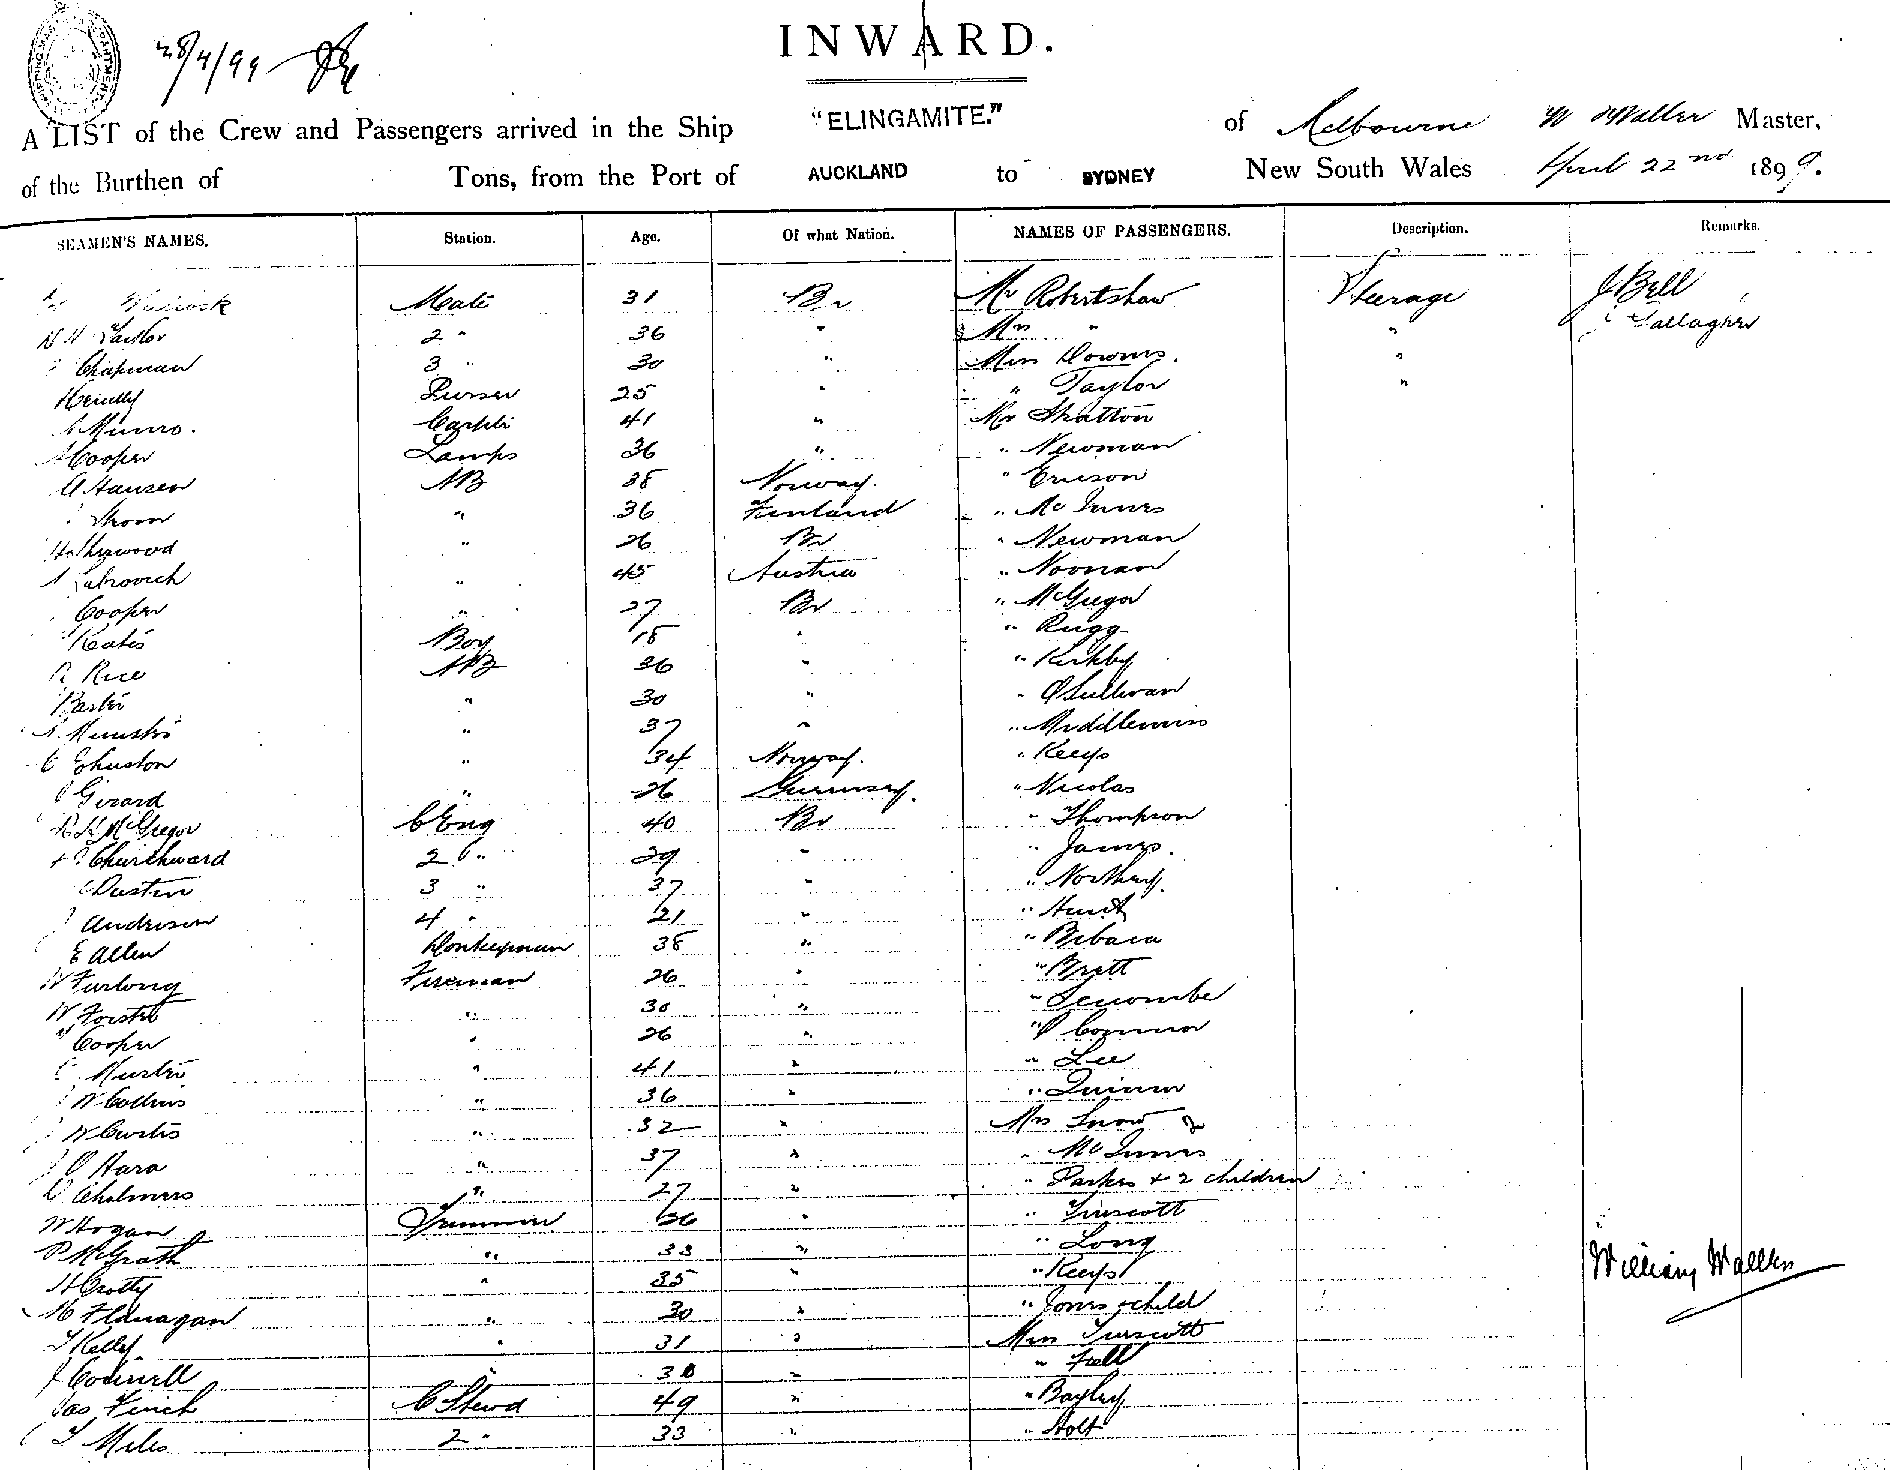 28/4/99
INWARD.
A LIST of the Crew and Passengers arrived in the Ship "ELINGAMITE." of Melbourne W Waller Master,
of the Burthen of Tons, from the Port of AUCKLAND to SYDNEY New South Wales April 22nd 1899.
SEAMEN'S NAMES. Station. Age. Of what Nation. NAMES OF PASSENGERS. Description. Remarks.
Mate 31 Br Mr Robertshaw Steerage J Bell
2 " 36 " Mrs " " Gallagher
Chapman 3 " 30 " Miss Downes. "
Purser 25 " " Taylor "
Munro. 41 " Mr Stratton
Cooper Lamps 36 " " Newman
Hansen AB 38 Norway. " Ericson
" 36 Finland " McInnes
" 26 Br " Newman
" 45 Austria " Noonan
Cooper " 27 Br " McGregor
Keates Boy 18 " " Rugg
R Rice AB 36 " " Kirkby
" 30 " " O'Sullivan
" 37 " " Middlemiss
" 34 Norway. " Keeys
Girard " 26 Guernsey. " Nicolas
McGregor C Eng 40 Br " Thompson
Churchward 2 " 29 " " James.
3 " 37 " "
Anderson 4 " 21 " " Hunt
E Allen Donkeyman 38 "
W Furlong Fireman 26 " " Brett
W Forster " 30 "
Cooper " 26 " " O'Connor
" 41 " " Lee
W Collins " 36 "
W Curtis " 32 " Mrs Snow
O'Hara " 37 " " McInnes
Chalmers " 27 " " Parkes + 2 children
W Hogan Trimmer 26 " " Truscott
P McGrath " 33 " " Long
H Crotty " 35 " " Keeys
M Flanagan " 30 " " Jones + child
T Kelly " 31 " Miss Truscott
" 30 " " Fell
Jas Finch C Stewd 49 " " Bayley
T Miles 2 " 33 " " Holt
William Waller